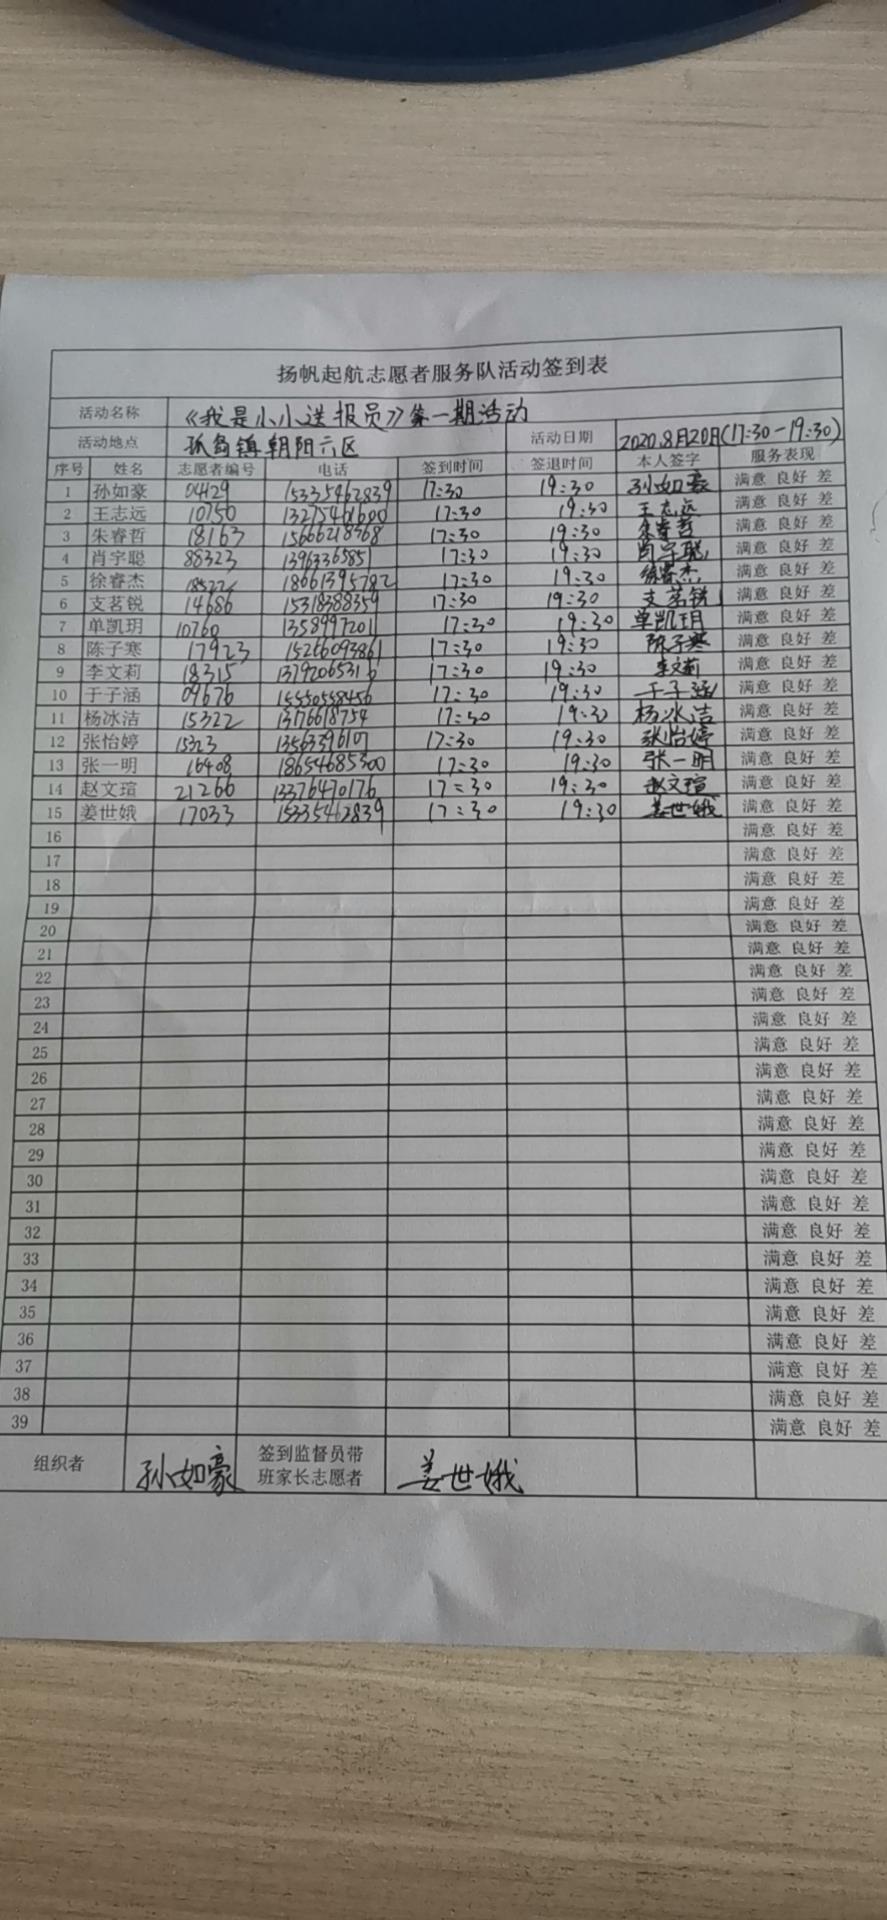 扬帆起航志愿者服务队活动签到表
活动名称 《我是小小送报员》第一期活动
活动地点 孤岛镇朝阳六区 活动日期 2020.8月20日(17:30-19:30)
序号 姓名 志愿者编号 电话 签到时间 签退时间 本人签字 服务表现
1 孙如豪 04129 15335462839 17:30 19:30 孙如豪 满意 良好 差
2 王志远 10750 13275461600 17:30 19:30 王志远 满意 良好 差
3 朱睿哲 18163 15666218368 17:30 19:30 朱睿哲 满意 良好 差
4 肖宇聪 88323 13963365851 17:30 19:30 肖宇聪 满意 良好 差
5 徐睿杰 18661395782 17:30 19:30 徐睿杰 满意 良好 差
6 支茗锐 14686 15318388359 17:30 19:30 支茗锐 满意 良好 差
7 单凯玥 10760 13589972011 17:30 19:30 单凯玥 满意 良好 差
8 陈子寒 17923 15266093861 17:30 19:30 陈子寒 满意 良好 差
9 李文莉 18315 13792065316 17:30 19:30 李文莉 满意 良好 差
10 于子涵 09676 15550558456 17:30 19:30 于子涵 满意 良好 差
11 杨冰洁 15322 13176618754 17:30 19:30 杨冰洁 满意 良好 差
12 张怡婷 15323 13563396107 17:30 19:30 张怡婷 满意 良好 差
13 张一明 16408 18654685300 17:30 19:30 张一明 满意 良好 差
14 赵文瑄 21266 13376470176 17:30 19:30 赵文瑄 满意 良好 差
15 姜世娥 17033 15335462839 17:30 19:30 姜世娥 满意 良好 差
16 满意 良好 差
17 满意 良好 差
18 满意 良好 差
19 满意 良好 差
20 满意 良好 差
21 满意 良好 差
22 满意 良好 差
23 满意 良好 差
24 满意 良好 差
25 满意 良好 差
26 满意 良好 差
27 满意 良好 差
28 满意 良好 差
29 满意 良好 差
30 满意 良好 差
31 满意 良好 差
32 满意 良好 差
33 满意 良好 差
34 满意 良好 差
35 满意 良好 差
36 满意 良好 差
37 满意 良好 差
38 满意 良好 差
39 满意 良好 差
组织者 孙如豪 签到监督员带
班家长志愿者 姜世娥